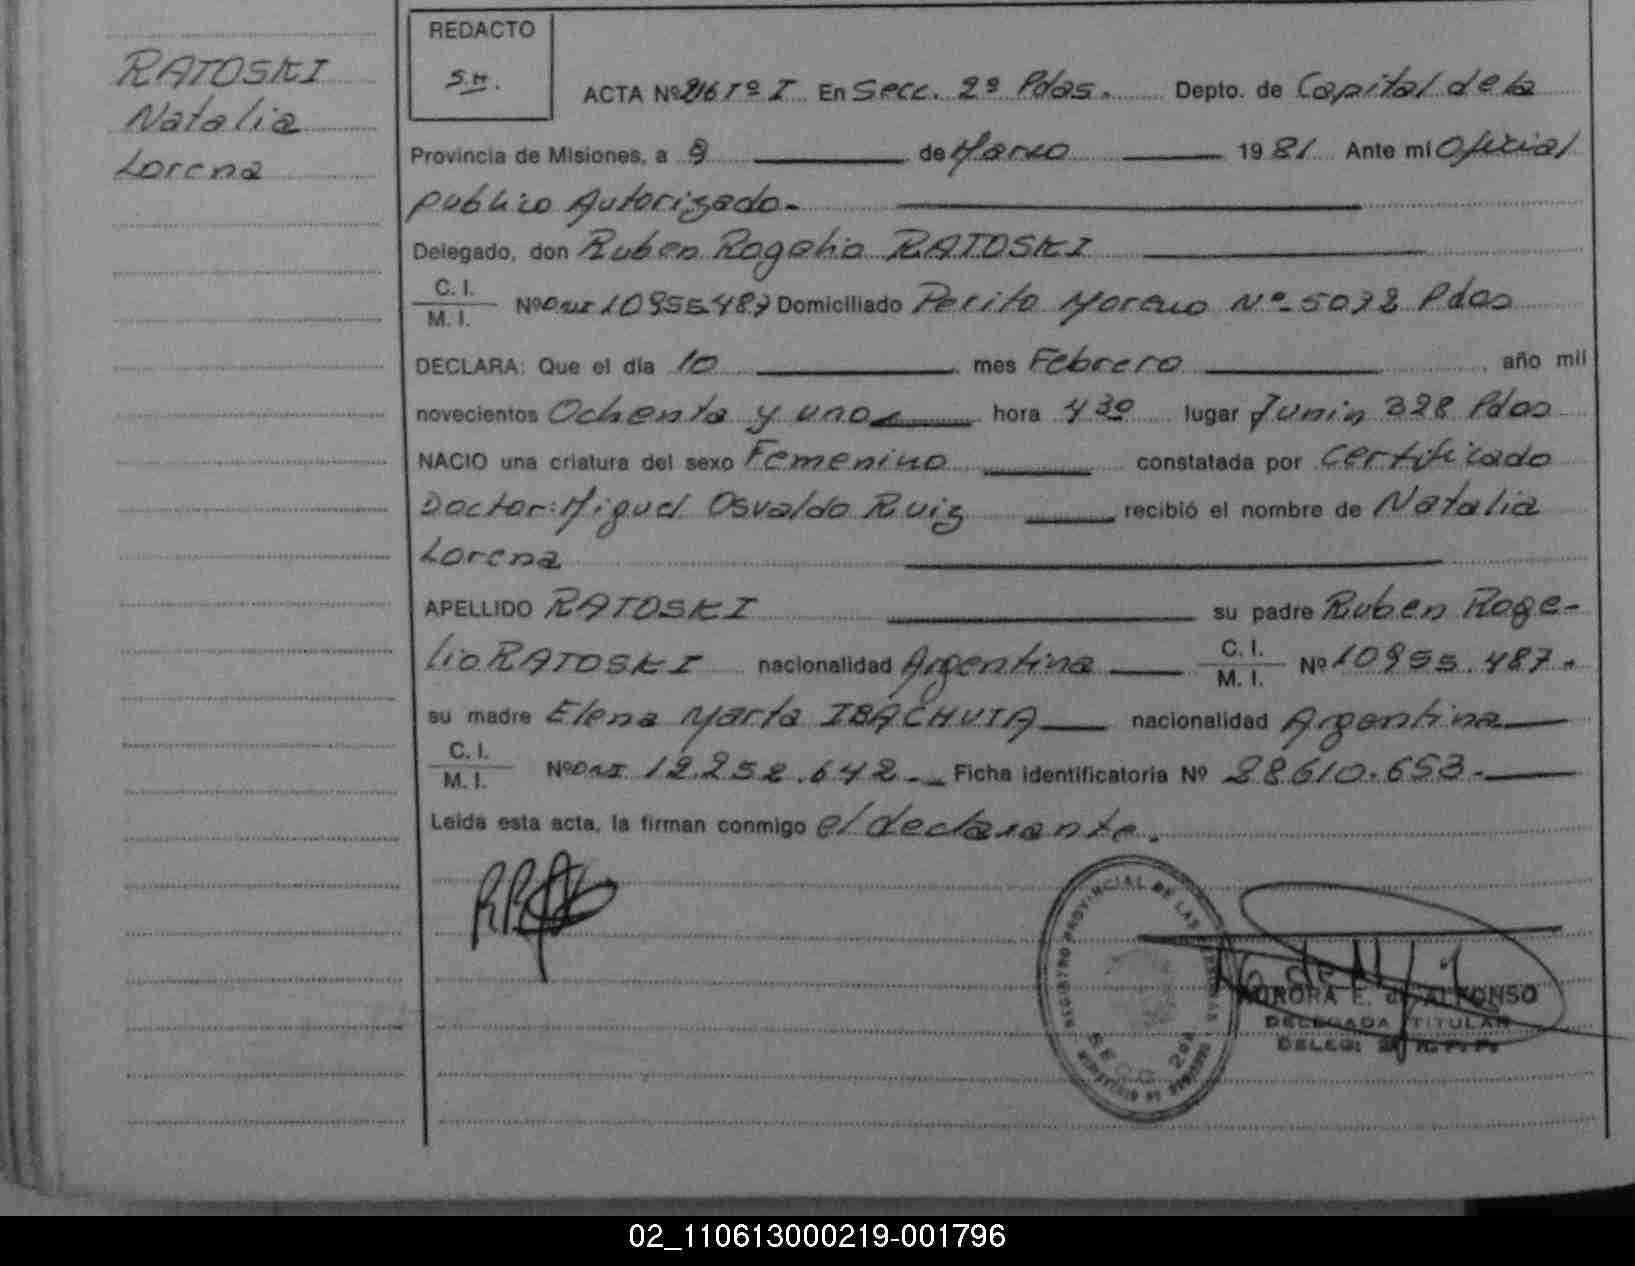 RATOSKI
Natalia
Lorena
REDACTO
S.M.
ACTA Nº 216 Tº I En Secc. 2ª Pdas. Depto. de Capital de la
Provincia de Misiones, a 9 de Marzo 1981 Ante mi Oficial
publico Autorizado.
Delegado, don Ruben Rogelio RATOSKI
C. I.
M. I. Nº DNI 10955.487 Domiciliado Perito Moreno Nº Pdas
DECLARA: Que el dia 10 mes Febrero año mil
novecientos Ochenta y uno hora 430 lugar Junin 328 Pdas
NACIO una criatura del sexo Femenino constatada por Certificado
Doctor: Miguel Osvaldo Ruiz recibió el nombre de Natalia
Lorena
APELLIDO RATOSKI su padre Ruben Roge-
lio RATOSKI nacionalidad Argentina C. I.
M. I. Nº 10955.487.
su madre Elena Marta nacionalidad Argentina
C. I.
M. I. Nº DNI 12.252.642. Ficha identificatoria Nº 28610.653.
Leida esta acta, la firman conmigo el declarante.
REGISTRO PROVINCIAL DE LAS PERSONAS
SECC. 2da
AURORA E. de ALFONSO
DELEGADA TITULAR
DELEG: R. P. P.
02_110613000219-001796